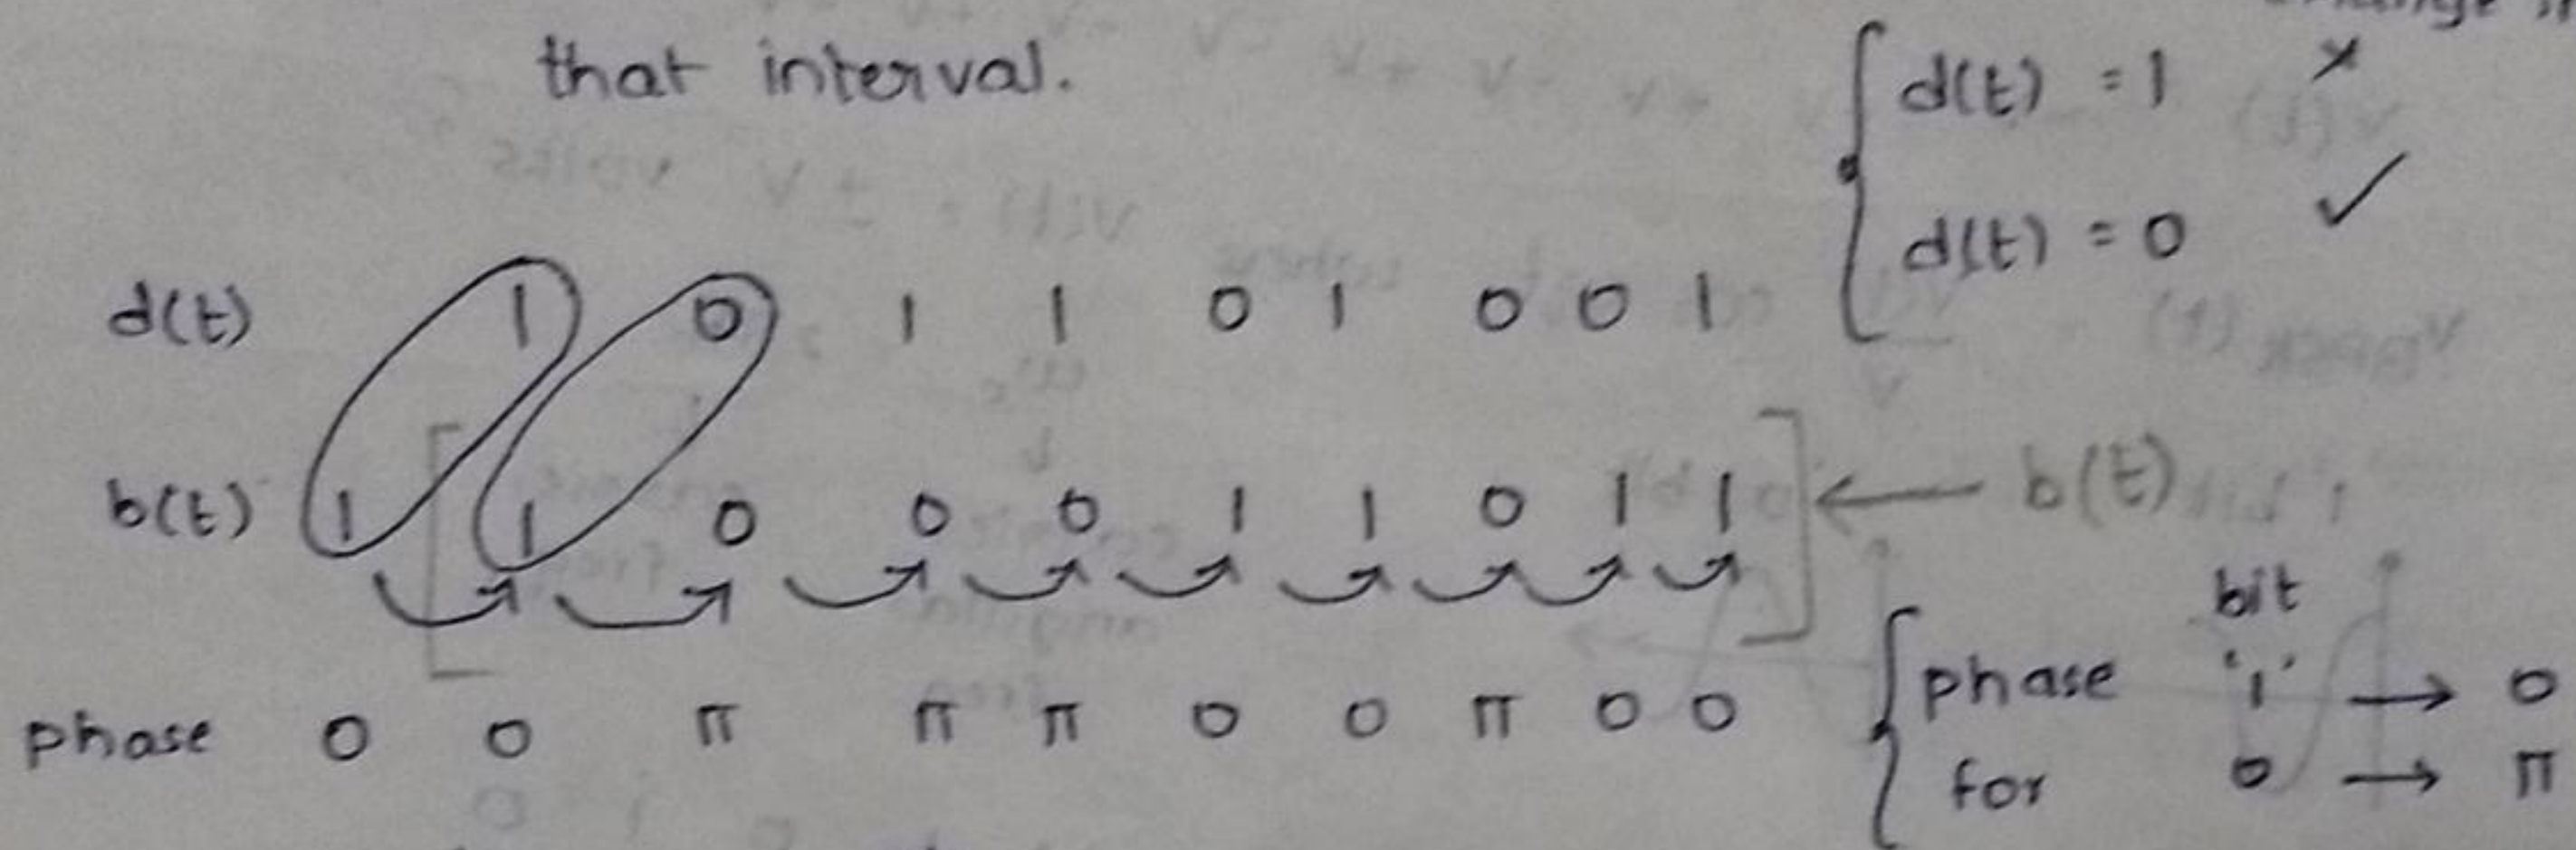 that interval.
d(t) = 1 ×
d(t) = 0 ✓
d(t) 1 0 1 1 0 1 0 0 1
b(t) 1 1 0 0 0 1 1 0 1 1 ← b(t)
phase 0 0 π π π 0 0 π 0 0
bit
phase '1' → 0
for 0 → π